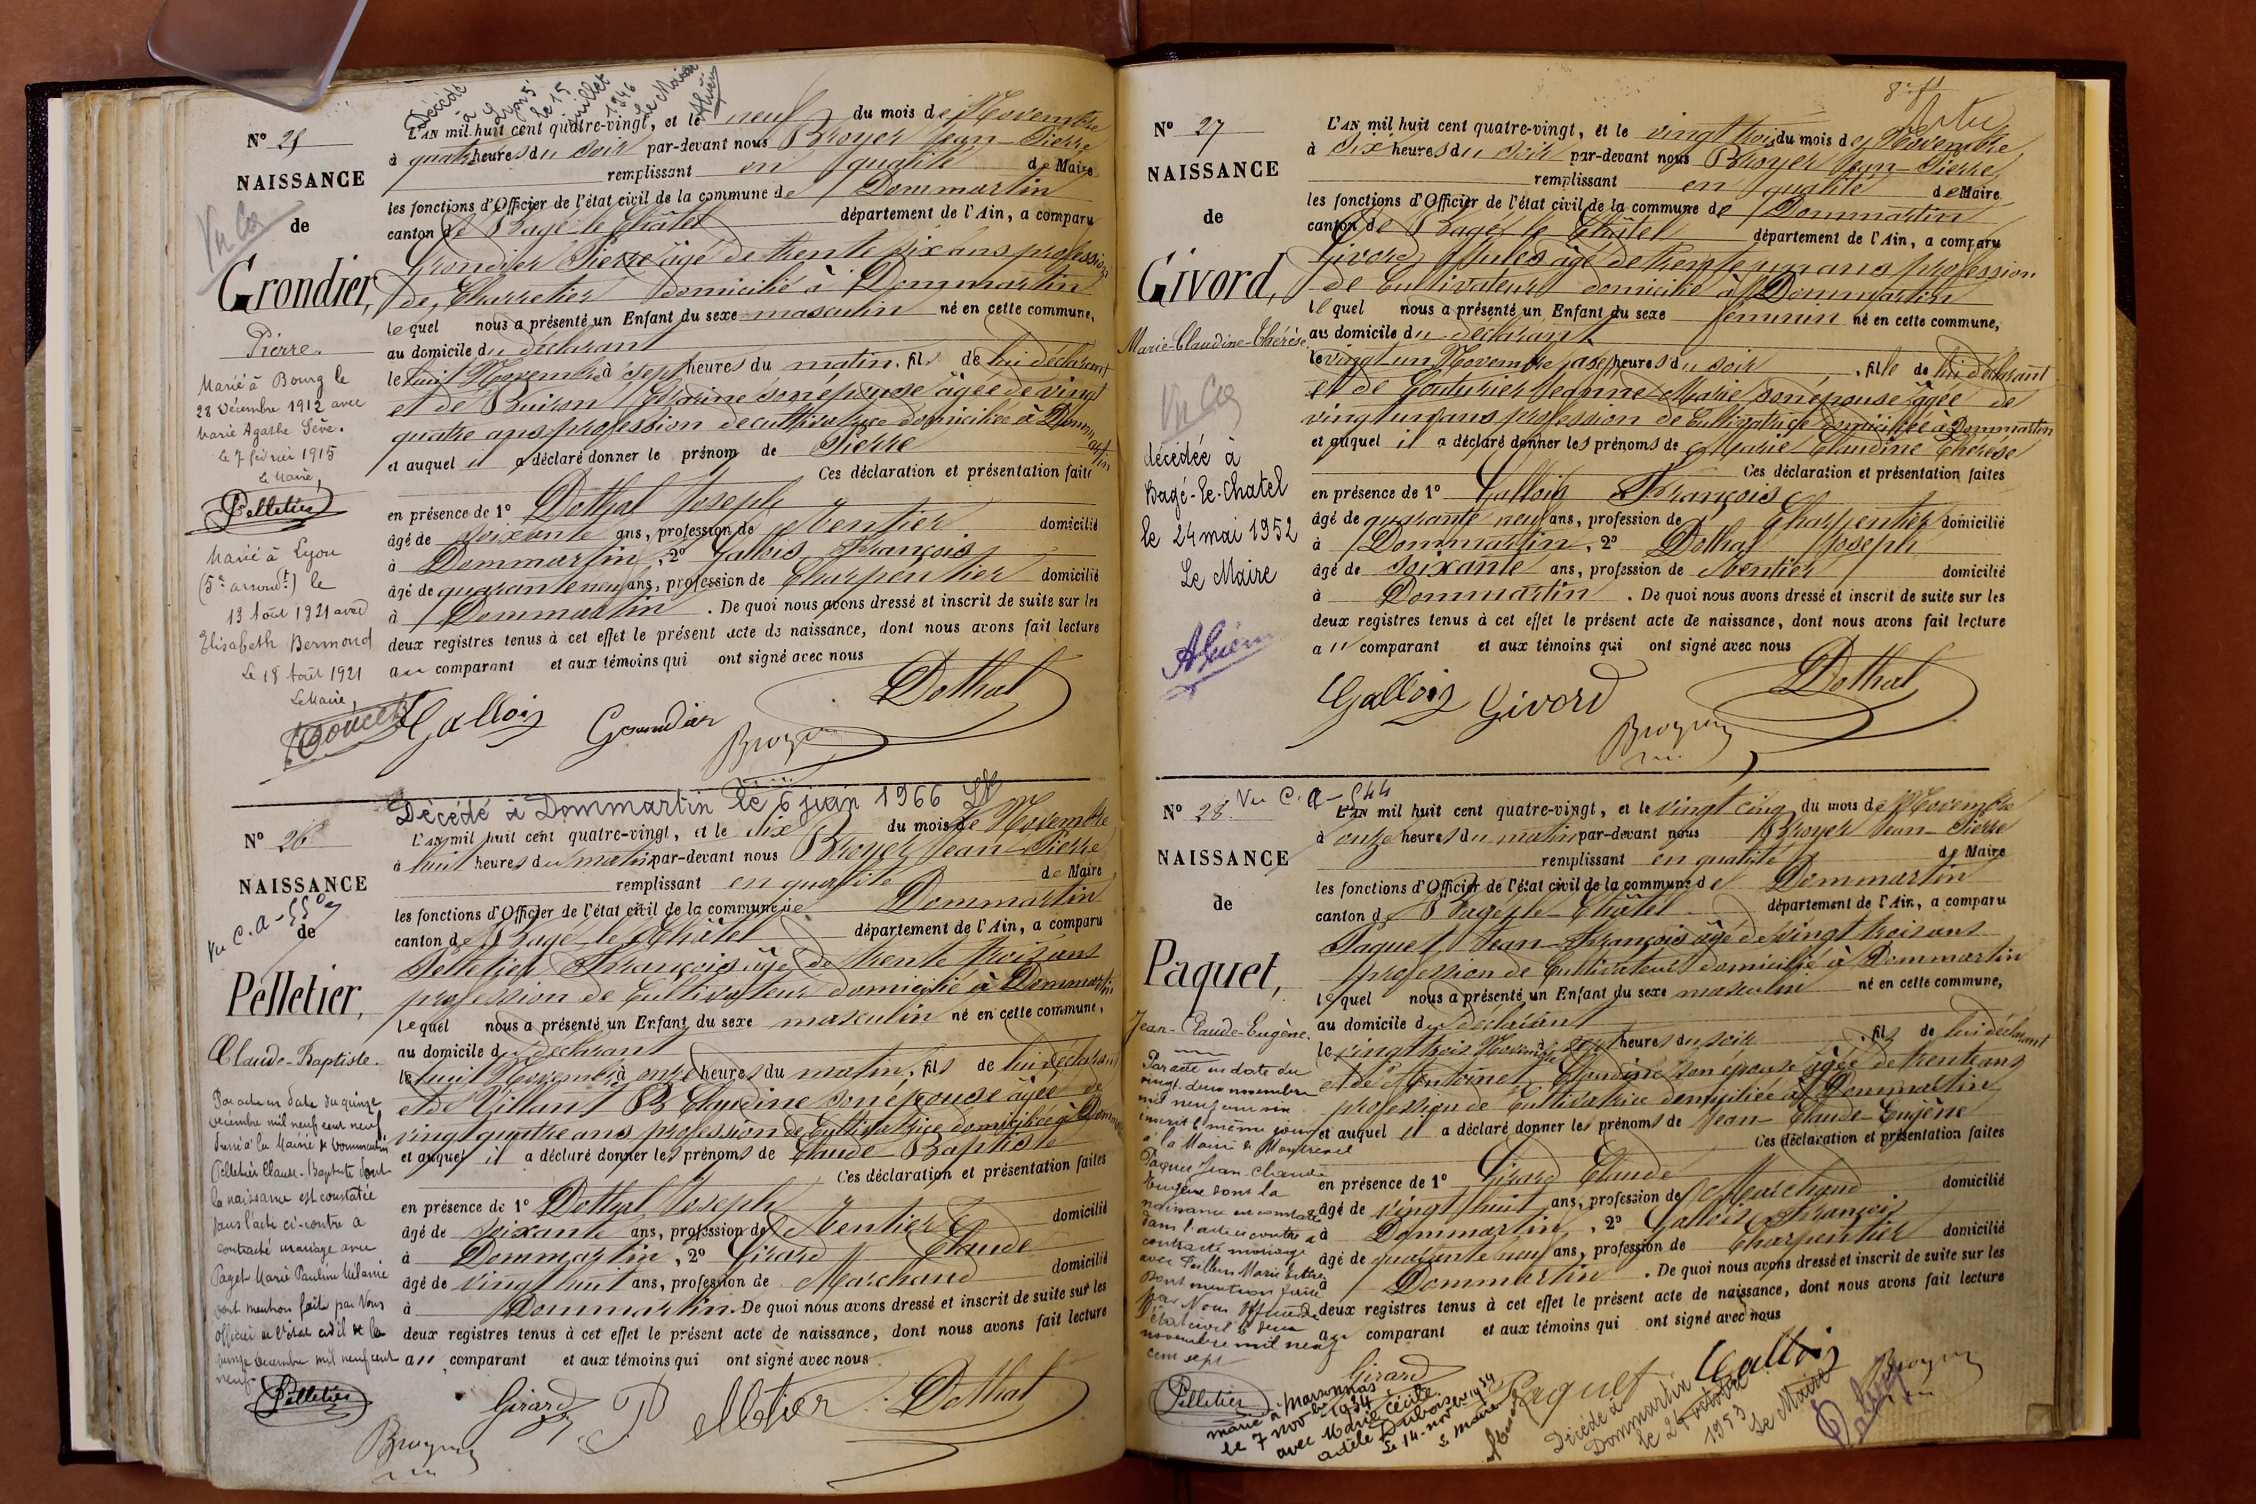 Décédé
à
Lyon 5
le 15
juillet
1946
Le Maire
N° 25
NAISSANCE
de
Vu Ca
Grondier,
Pierre.
Marié à Bourg le
28 Décembre 1912 avec
Marie Agathe Sève.
le 7 février 1915
le Maire,
Pelletier
Marié à Lyon
(5e arrondt) le
13 Août 1921 avec
Elisabeth Bermond
Le 18 Août 1921
Le Maire,
L'AN mil huit cent quatre-vingt, et le neuf du mois de Novembre
à quatre heures du soir par-devant nous Broyer Jean-Pierre
remplissant en qualité de Maire
les fonctions d'Officier de l'état civil de la commune de Dommartin
canton de Bagé-le-Châtel département de l'Ain, a comparu
Grondier Pierre âgé de trente six ans profession
de Charretier domicilié à Dommartin
lequel nous a présenté un Enfant du sexe masculin né en cette commune,
au domicile du déclarant
le huit Novembre à sept heures du matin, fils de lui déclarant
et de Buiron son épouse âgée de vingt
quatre ans profession de cultivatrice domiciliée à Dommartin
et auquel il a déclaré donner le prénom de Pierre
Ces déclaration et présentation faites
en présence de 1° Dothal Joseph
âgé de soixante ans, profession de Rentier domicilié
à Dommartin, 2° Gallois François
âgé de quarante neuf ans, profession de Charpentier domicilié
à Dommartin. De quoi nous avons dressé et inscrit de suite sur les
deux registres tenus à cet effet le présent acte de naissance, dont nous avons fait lecture
au comparant et aux témoins qui ont signé avec nous
Dothal
Gallois Grondier
Broyer
Décédé à Dommartin le 6 juin 1966
N° 26
NAISSANCE
de
Vu C.a-
Pelletier,
Claude-Baptiste.
Par acte en date du quinze
décembre mil neuf cent neuf
dressé à la Mairie de Dommartin
Pelletier Claude-Baptiste dont
la naissance est constatée
dans l'acte ci-contre a
contracté mariage avec
Paget Marie Pauline Mélanie
dont mention faite par Nous
officier de l'état civil le
quinze décembre mil neuf cent
neuf.
Pelletier
L'AN mil huit cent quatre-vingt, et le dix du mois de Novembre
à huit heures du matin par-devant nous Broyer Jean-Pierre
remplissant en qualité de Maire
les fonctions d'Officier de l'état civil de la commune de Dommartin
canton de Bagé-le-Châtel département de l'Ain, a comparu
Pelletier François âgé de trente trois ans
profession de Cultivateur domicilié à Dommartin
lequel nous a présenté un Enfant du sexe masculin né en cette commune,
au domicile du déclarant
le huit Novembre à onze heures du matin, fils de lui déclarant
et de Villand Claudine son épouse âgée de
vingt quatre ans profession de Cultivatrice domiciliée à Dommartin
et auquel il a déclaré donner les prénoms de Claude Baptiste
Ces déclaration et présentation faites
en présence de 1° Dothal Joseph
âgé de soixante ans, profession de Rentier domicilié
à Dommartin, 2° Girard Claude
âgé de vingt huit ans, profession de Marchand domicilié
à Dommartin. De quoi nous avons dressé et inscrit de suite sur les
deux registres tenus à cet effet le présent acte de naissance, dont nous avons fait lecture
au comparant et aux témoins qui ont signé avec nous.
Girard Pelletier Dothal
Broyer
N° 27
NAISSANCE
de
Givord,
Marie-Claudine-Thérèse.
Vu Ca
décédée à
Bagé-le-Chatel
le 24 mai 1952
Le Maire
L'AN mil huit cent quatre-vingt, et le vingt trois du mois de Novembre
à six heures du soir par-devant nous Broyer Jean-Pierre
remplissant en qualité de Maire
les fonctions d'Officier de l'état civil de la commune de Dommartin
canton de Bagé-le-Châtel département de l'Ain, a comparu
Givord Jules âgé de trente un ans profession
de Cultivateur domicilié à Dommartin
lequel nous a présenté un Enfant du sexe féminin né en cette commune,
au domicile du déclarant
le vingt un Novembre à sept heures du soir, fille de lui déclarant
et de Couturier Jeanne Marie son épouse âgée de
vingt un ans profession de Cultivatrice domiciliée à Dommartin
et auquel il a déclaré donner les prénoms de Marie Claudine Thérèse
Ces déclaration et présentation faites
en présence de 1° Gallois François
âgé de quarante neuf ans, profession de Charpentier domicilié
à Dommartin, 2° Dothal Joseph
âgé de soixante ans, profession de Rentier domicilié
à Dommartin. De quoi nous avons dressé et inscrit de suite sur les
deux registres tenus à cet effet le présent acte de naissance, dont nous avons fait lecture
au comparant et aux témoins qui ont signé avec nous
Gallois Givord Dothal
Broyer
N° 28. Vu C.a-
NAISSANCE
de
Paquet,
Jean-Claude-Eugène.
Par acte en date du
vingt deux novembre
mil neuf cent six
inscrit le même jour
à la Mairie de Montrevel
Paquet Jean-Claude
Eugène dont la
naissance est constatée
dans l'acte ci contre a
contracté mariage
avec Marie
dont mention faite
par Nous Officier de
l'état civil le deux
novembre mil neuf
cent sept
Pelletier
L'AN mil huit cent quatre-vingt, et le vingt cinq du mois de Novembre
à onze heures du matin par-devant nous Broyer Jean-Pierre
remplissant en qualité de Maire
les fonctions d'Officier de l'état civil de la commune de Dommartin
canton de Bagé-le-Châtel département de l'Ain, a comparu
Paquet Jean-François âgé de vingt trois ans
profession de Cultivateur domicilié à Dommartin
lequel nous a présenté un Enfant du sexe masculin né en cette commune,
au domicile du déclarant
le vingt trois Novembre à sept heures du soir, fils de lui déclarant
et de Antoinet Claudine son épouse âgée de trente ans
profession de Cultivatrice domiciliée à Dommartin
et auquel il a déclaré donner les prénoms de Jean-Claude-Eugène
Ces déclaration et présentation faites
en présence de 1° Girard Claude
âgé de vingt huit ans, profession de Marchand domicilié
à Dommartin, 2° Gallois François
âgé de quarante neuf ans, profession de Charpentier domicilié
à Dommartin. De quoi nous avons dressé et inscrit de suite sur les
deux registres tenus à cet effet le présent acte de naissance, dont nous avons fait lecture
au comparant et aux témoins qui ont signé avec nous
Girard Paquet Gallois Broyer
marié à Marsonnas
le 7 novbre 1934
avec Marie Cécile
Adèle Dubois
Le 14-nov 1934
Le Maire
Décédé à
Dommartin
le 24 octobre
1953
Le Maire